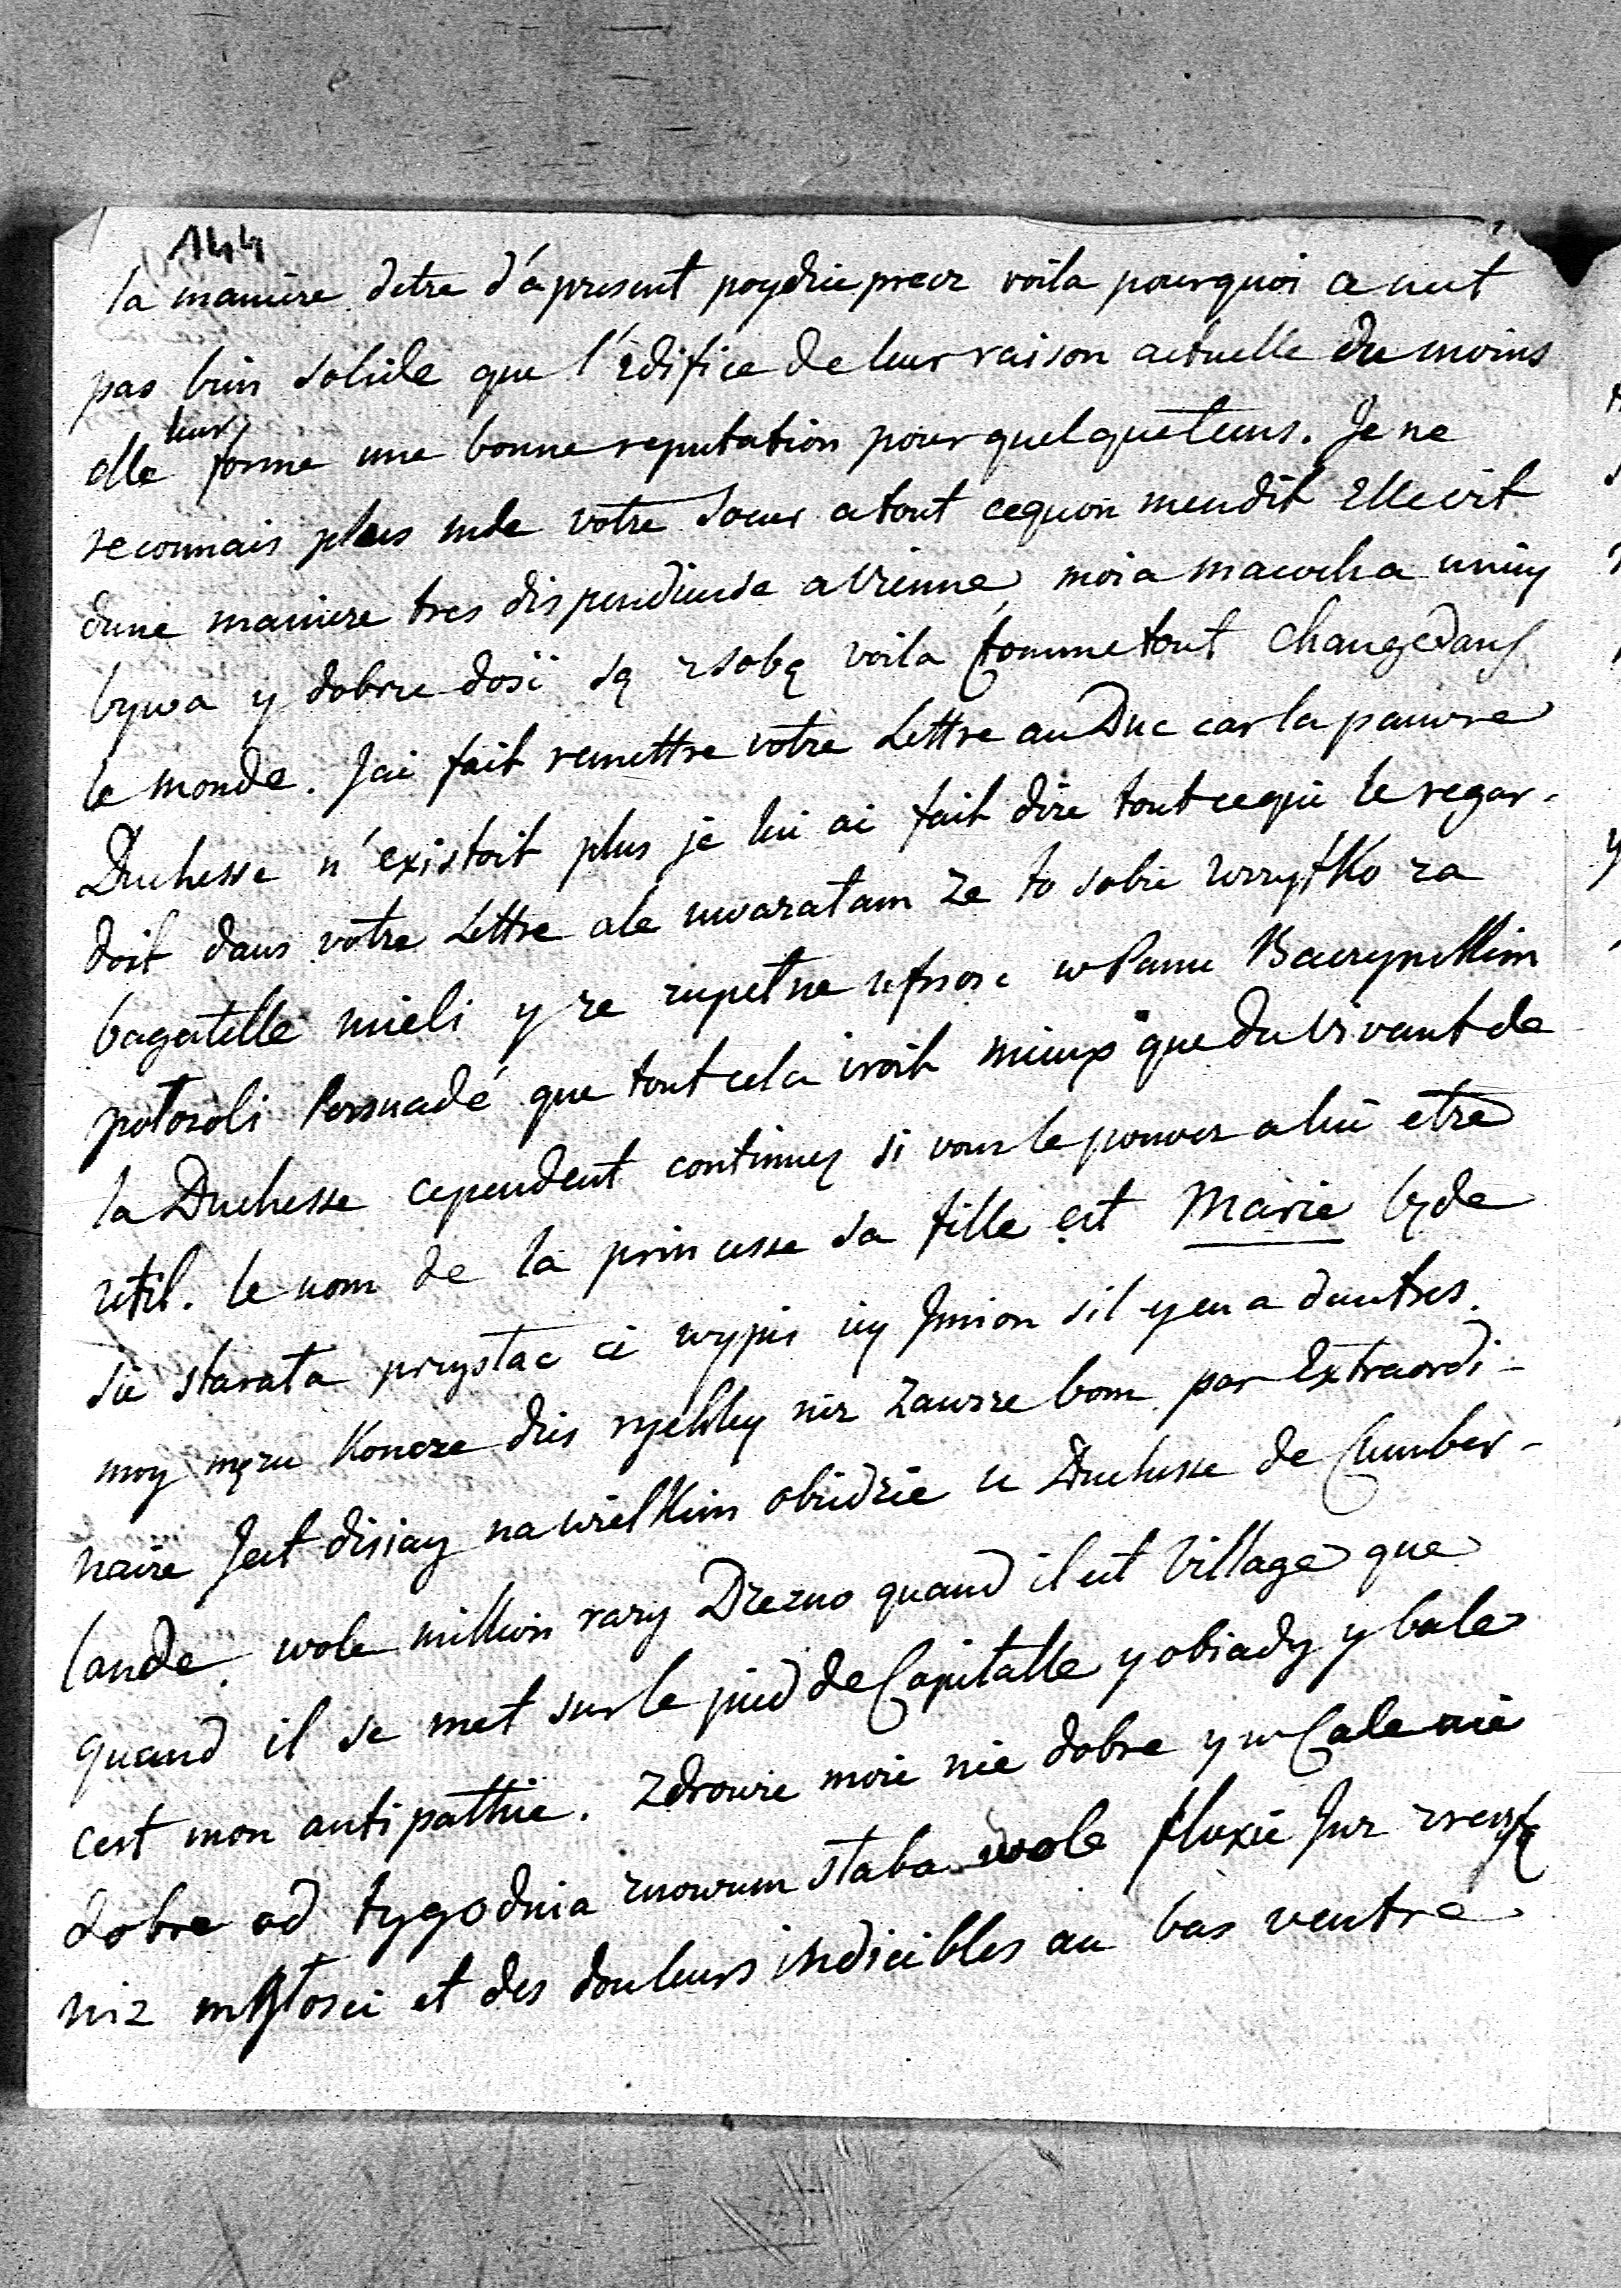 144
la maniere detre d'apresent poydzie precz voila pourquoi ce nest
pas bien solide que l'edifice de leur raison actuelle du moins
elle leur forme une bonne reputation pour quelque tems. Je ne
reconnais plus votre soeur a tout cequon mendit Elle vit
dune maniere tres dispendieuse a Vienne moia macocha uniey
bywa y dobrze dosi są zsobą voila comme tout change dans
le monde. Jai fait remettre votre Lettre au Duc car la pauvre
Duchesse n'existoit plus je lui ai fait dire tout cequi le regar-
doit dans votre Lettre ale uwazałam ze to sobie wrzyſtko za
bagatelle mieli y ze zupełne ufnosc w Panu Baczynskim
położoli Persuadé que tout cela iroit mieux que du vivant de
la Duchesse cependent continuez si vous le pouvez a lui etre
util. le nom de la princesse sa fille est Marie będe
sie starała przysłac ci wypis iey Imion sil y en a dautres.
moy mężu koncze dzis ryehley niz zawsze bom par Extraordi-
naire Jest disiay na wielkim obiedzie u Duchesse de Cumber-
lande. wole million razy Drezno quand il est Village que
quand il se met sur le pied de Capitalle y obiady y bale
cest mon antipathie. zdrowie moie nie dobre y w Cale nie
dobre od tygodnia znowum słaba wole fluxie Juz zreszfą
niz mdłosci et des douleurs indicibles au bas ventre